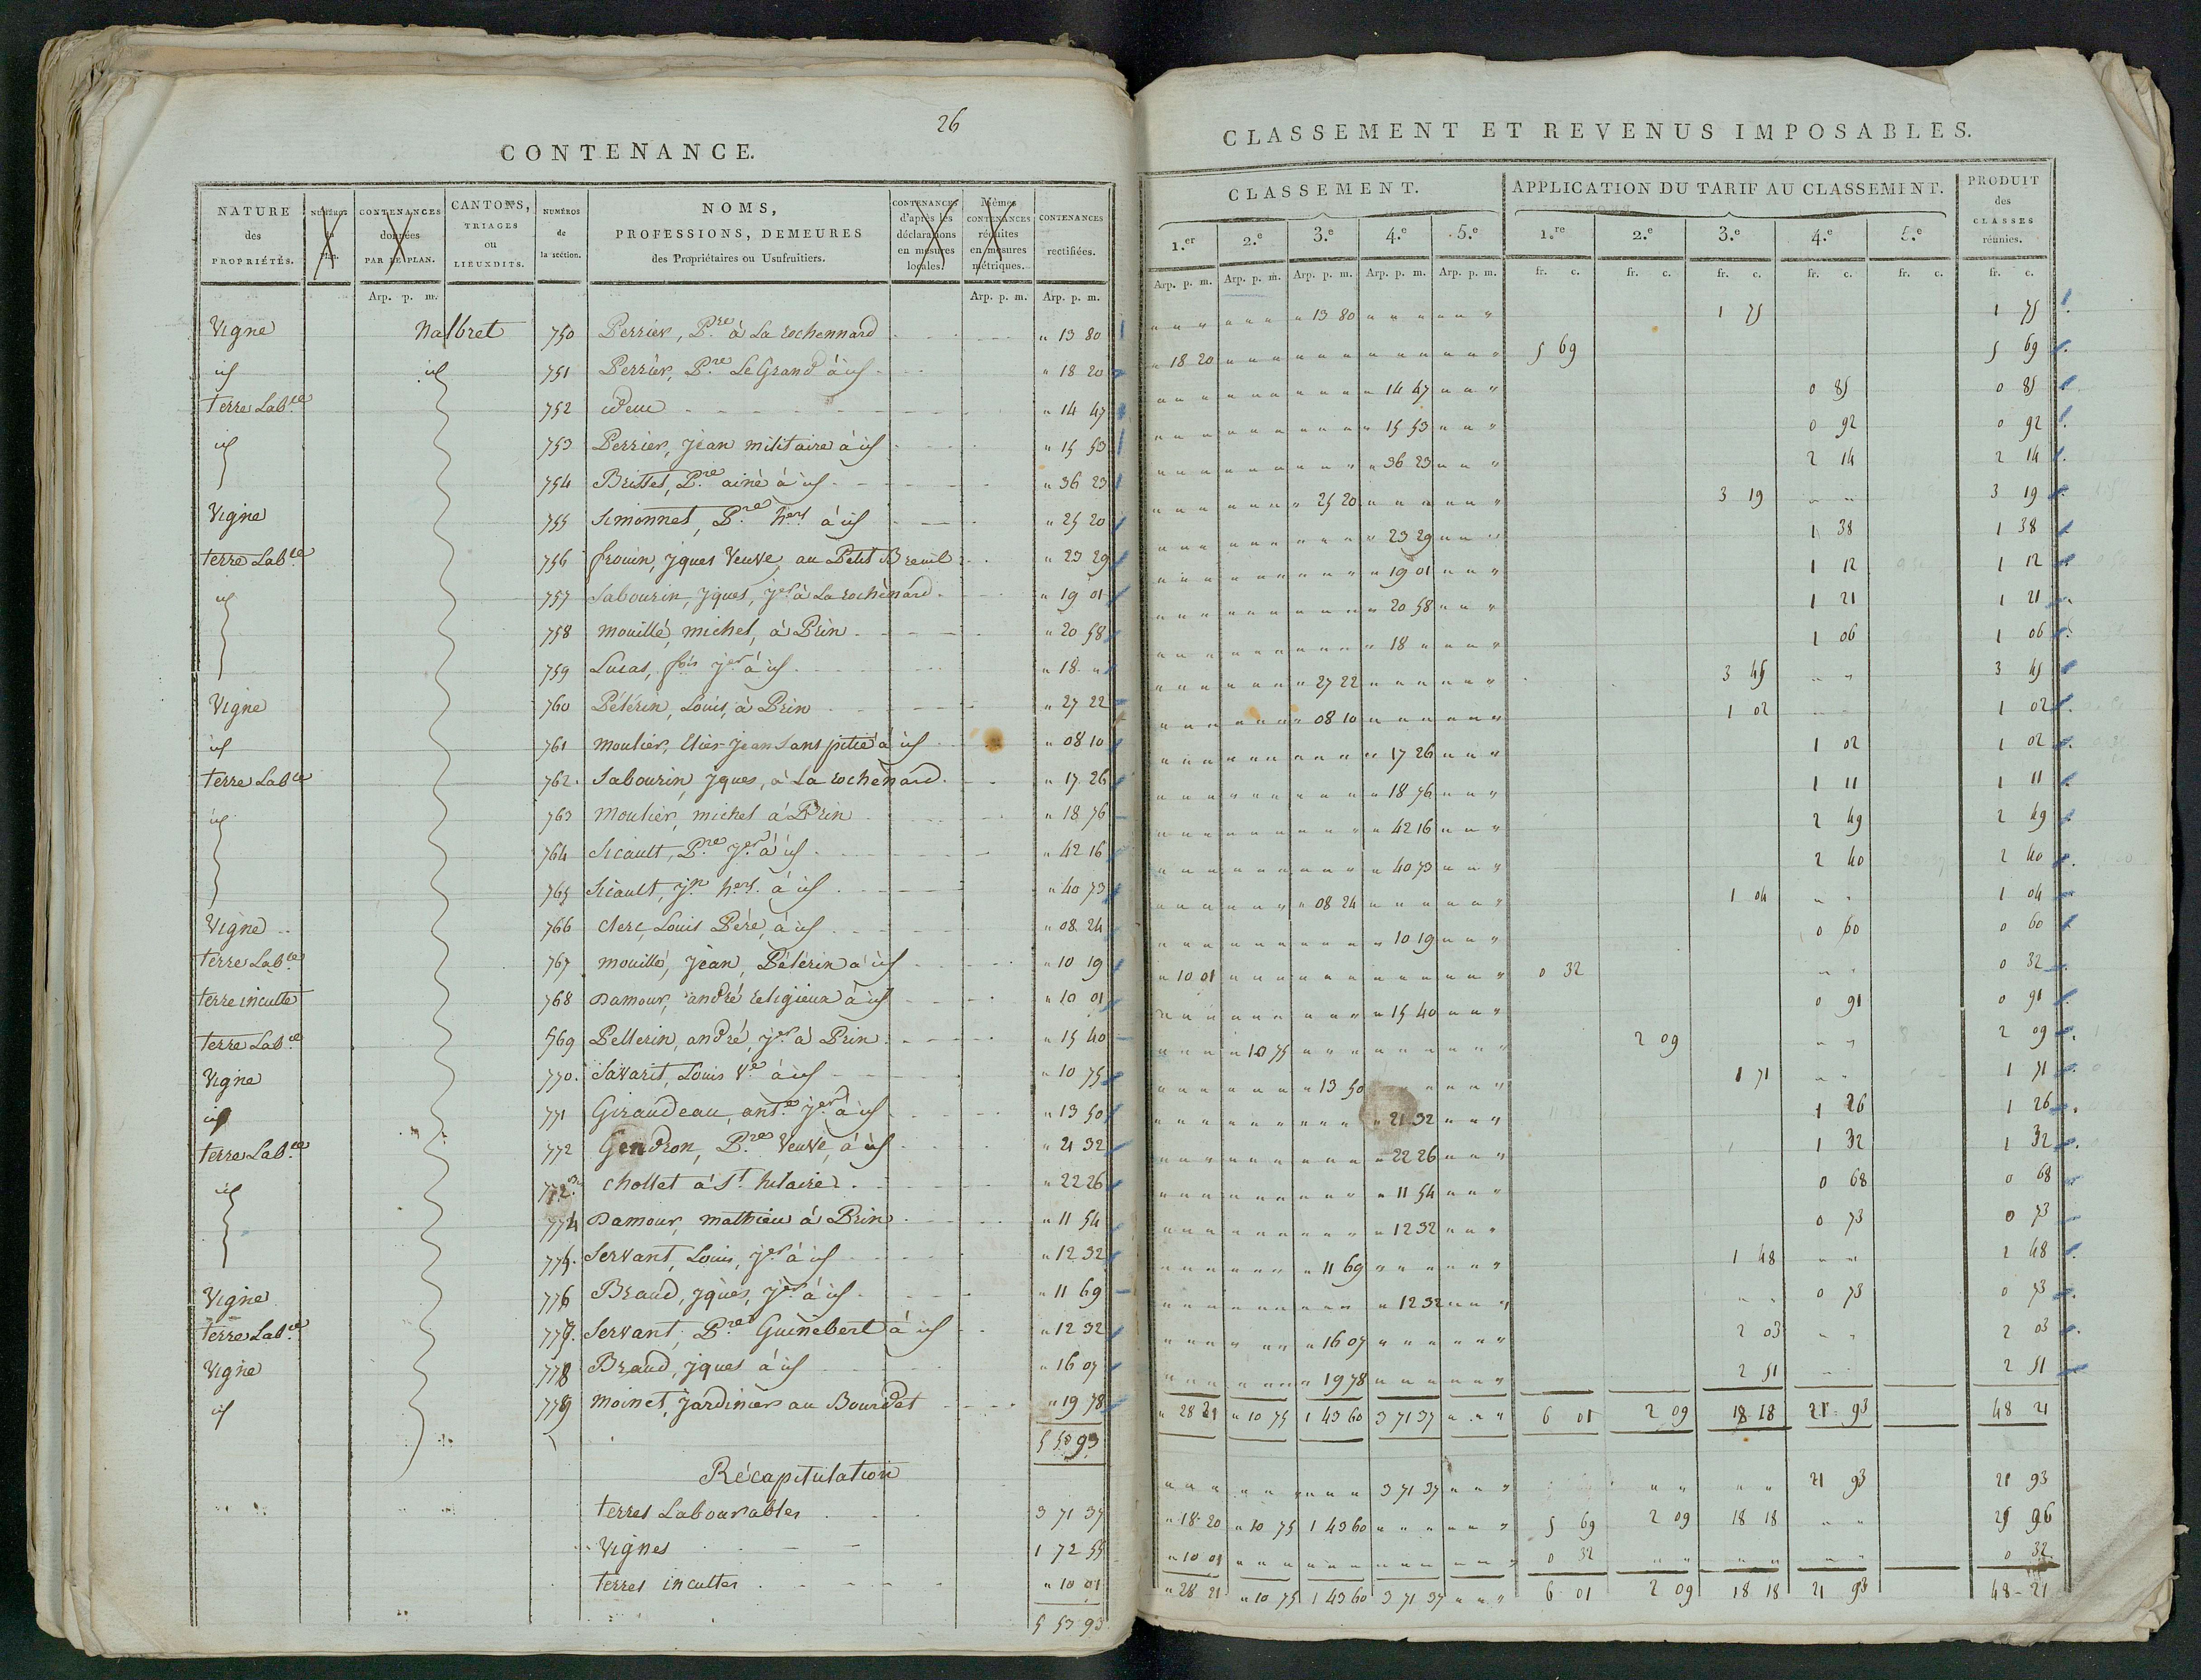 26
CONTENANCE.
NATURE des PROPRIÉTÉS. | NUMÉROS du Plan. | CONTENANCES données PAR LE PLAN. | CANTONS, TRIAGES ou LIEUXDITS. | NUMÉROS de la section. | NOMS, PROFESSIONS, DEMEURES des Propriétaires ou Usufruitiers. | CONTENANCES d'après les déclarations en mesures locales. | Mêmes CONTENANCES réduites en mesures métriques. | CONTENANCES rectifiées.
Arp. p. m. | Arp. p. m. | Arp. p. m.
Vigne Nalbret 750 Perrier, P.re à La rochennard " 13 80
id id 751 Perrier, P.re Le Grand à id " 18 20
terre Lab.le 752 idem " 14 47
id 753 Perrier, jean militaire à id " 15 53
754 Brisset, P.re ainé à id " 36 23
Vigne 755 Simonnet, P.re hers à id " 25 20
terre Lab.le 756 frouin, jques Veuve, au Petit Breuil " 23 29
id 757 Sabourin, jques, jer à La rochènard " 19 01
758 mouillé, michel, à Prin " 20 58
759 Lucas, fois jer à id " 18 "
Vigne 760 Pélérin, Louis, à Prin " 27 22
id 761 moulier, jean Sans pitié à id " 08 10
terre Lab.le 762. Sabourin, jques, à La rochènard " 17 26
id 763 Moulier, michel à Prin " 18 76
764 Sicault, P.re jer à id " 42 16
765 Sicault, jn hers. à id " 40 73
Vigne 766 Clerc, Louis Père, à id " 08 24
terre Lab.le 767 mouillé, jean, Pélérin à id " 10 19
terre inculte 768 Damour, andré religieux à id " 10 01
terre Lab.le 769 Pellerin, andré, jer à Prin " 15 40
Vigne 770. Savarit, Louis V.e à id " 10 75
id 771 Giraudeau, ant.e jer à id " 13 50
terre Lab.le 772 Gendron, P.re Veuve, à id " 21 32
id chollet à St hilaire " 22 26
774 Damour, mathieu à Prin " 11 54
775. Servant, Louis, jer à id " 12 32
Vigne 776 Braud, jques, jer à id " 11 69
terre Lab.le 777. Servant, P.re Guinebert à id " 12 32
Vigne 778 Braud, jques à id " 16 07
id 779 moinet, jardinier au Bourdet " 19 78
5 53 93
Récapitulation
terres Labourables 3 71 37
Vignes 1 72 55
terres incultes " 10 01
5 53 93
CLASSEMENT ET REVENUS IMPOSABLES.
CLASSEMENT. | APPLICATION DU TARIF AU CLASSEMENT. | PRODUIT des CLASSES réunies.
1.er | 2.e | 3.e | 4.e | 5.e | 1.re | 2.e | 3.e | 4.e | 5.e
Arp. p. m. | Arp. p. m. | Arp. p. m. | Arp. p. m. | Arp. p. m. | fr. c. | fr. c. | fr. c. | fr. c. | fr. c. | fr. c.
" 13 80 | 1 75 | 1 75
" 18 20 | 5 69 | 5 69
" 14 47 | 0 85 | 0 85
" 15 53 | 0 92 | 0 92
" 36 23 | 2 14 | 2 14
" 25 20 | 3 19 | 3 19
" 23 29 | 1 38 | 1 38
" 19 01 | 1 12 | 1 12
" 20 58 | 1 21 | 1 21
" 18 " | 1 06 | 1 06
" 27 22 | 3 45 | 3 45
" 08 10 | 1 02 | 1 02
" 17 26 | 1 02 | 1 02
" 18 76 | 1 11 | 1 11
" 42 16 | 2 49 | 2 49
" 40 73 | 2 40 | 2 40
" 08 24 | 1 04 | 1 04
" 10 19 | 0 60 | 0 60
" 10 01 | 0 32 | 0 32
" 15 40 | 0 91 | 0 91
" 10 75 | 2 09 | 2 09
" 13 50 | 1 71 | 1 71
" 21 32 | 1 26 | 1 26
" 22 26 | 1 32 | 1 32
" 11 54 | 0 68 | 0 68
" 12 32 | 0 73 | 0 73
" 11 69 | 1 48 | 1 48
" 12 32 | 0 73 | 0 73
" 16 07 | 2 03 | 2 03
" 19 78 | 2 51 | 2 51
" 28 21 | " 10 75 | 1 43 60 | 3 71 37 | " " " | 6 01 | 2 09 | 18 18 | 21 93 | 48 21
3 71 37 | 21 93 | 21 93
" 18 20 | " 10 75 | 1 43 60 | 5 69 | 2 09 | 18 18 | 25 96
" 10 01 | 0 32 | 0 32
" 28 21 | " 10 75 | 1 43 60 | 3 71 37 | " " " | 6 01 | 2 09 | 18 18 | 21 93 | 48-21